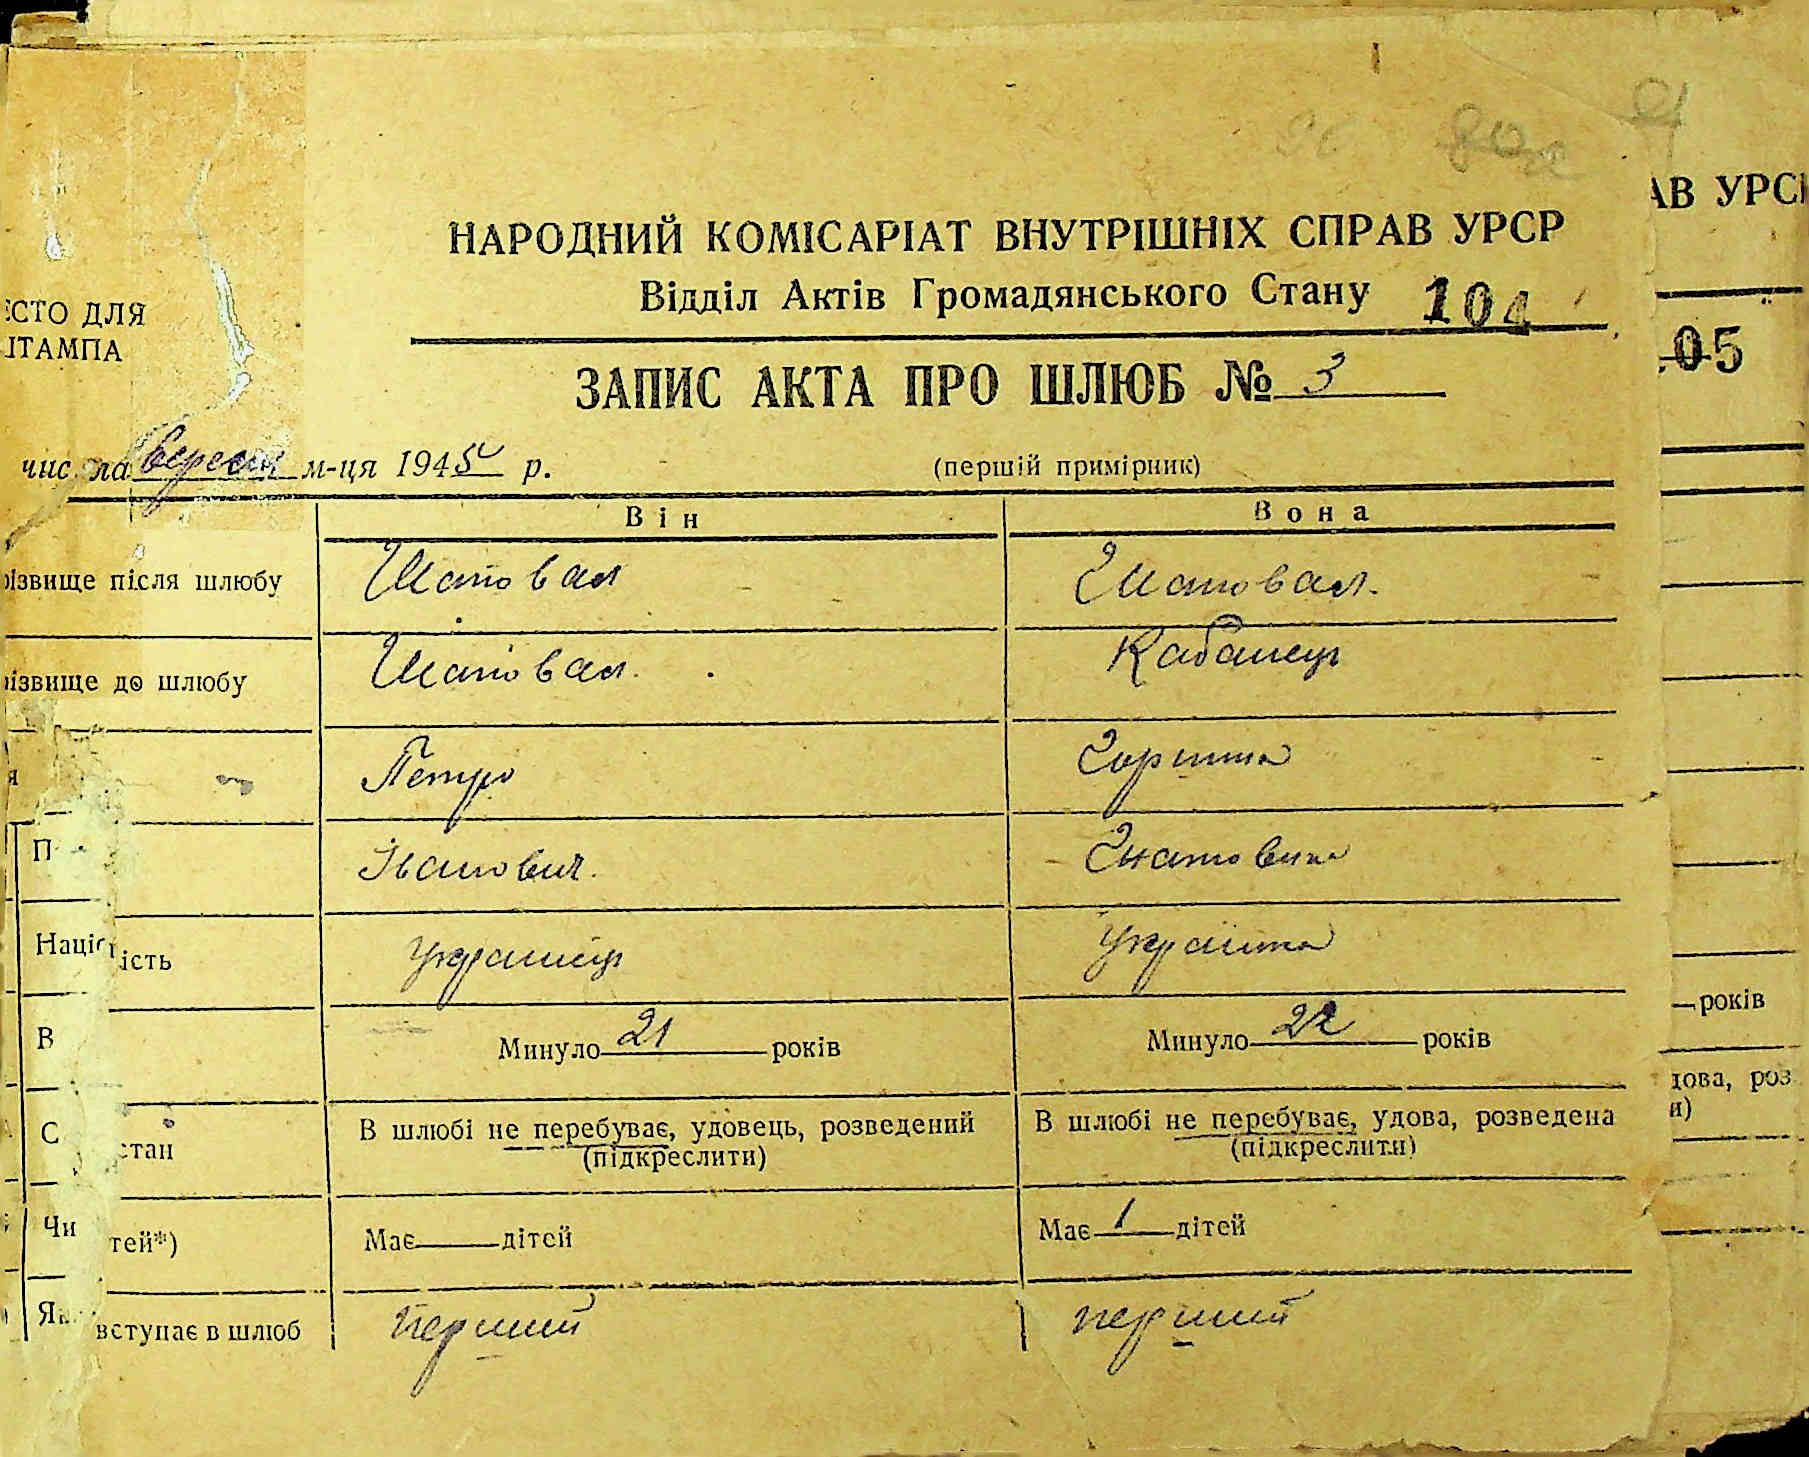 96 80
НАРОДНИЙ КОМІСАРІАТ ВНУТРІШНІХ СПРАВ УРСР
АВ УРСР
Відділ Актів Громадянського Стану 104
05
ЄСТО ДЛЯ
ШТАМПА
ЗАПИС АКТА ПРО ШЛЮБ № 3
числа вересня м-ця 1945 р. (перший примірник)
Він Вона
різвище після шлюбу Шаповал Шаповал.
різвище до шлюбу Шаповал. Кабанець
я Петро Горпина
П Іванович. Гнатовина
Націо ість Українець Українка
В Минуло 21 років Минуло 22 років
років
С стан В шлюбі не перебуває, удовець, розведений В шлюбі не перебуває, удова, розведена
(підкреслити) (підкреслити)
дова, роз
и)
Чи тей*) Має дітей Має 1 дітей
Як вступає в шлюб перший перший